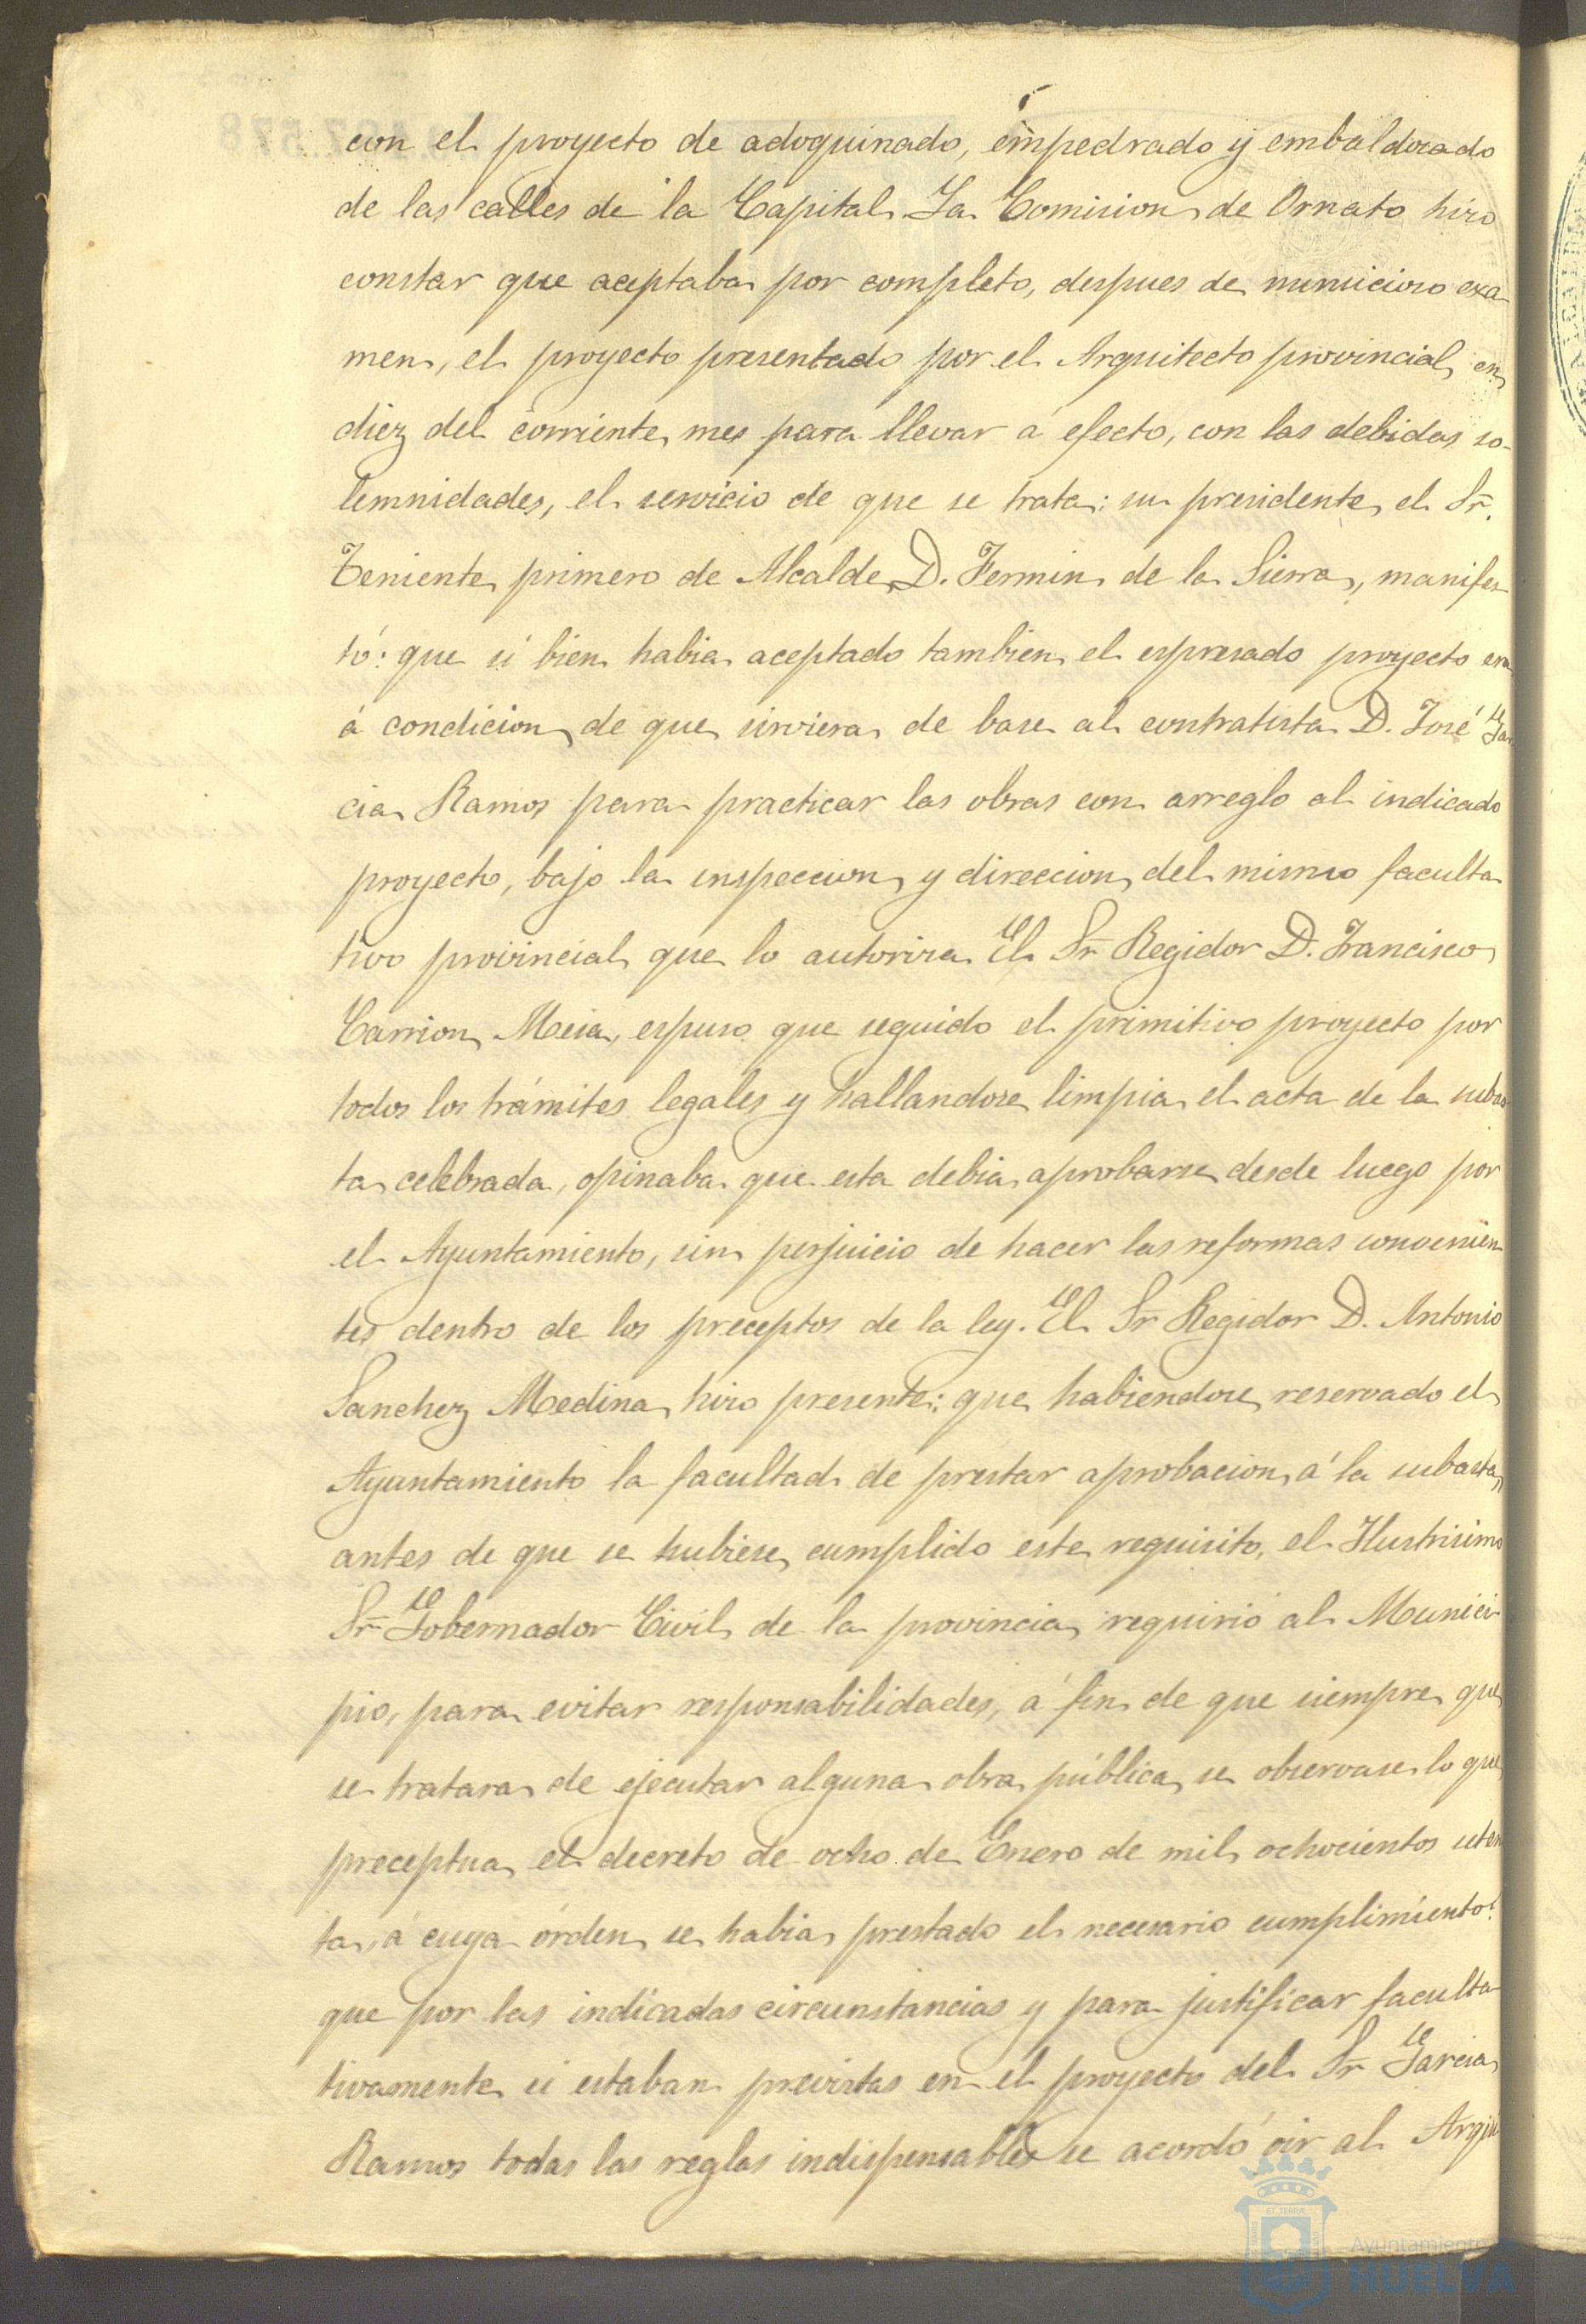 con el proyecto de adoquinado, empedrado y embaldosado
de las calles de la Capital. La Comision de Ornato hizo
constar que aceptaba por completo, despues de minucioso exa-
men, el proyecto presentado por el Arquitecto provincial en
diez del corriente mes para llevar á efecto, con las debidas so-
lemnidades, el servicio de que se trata: su presidente el Sr.
Teniente primero de Alcalde D. Fermin de la Sierra, manifes-
tó: que si bien habia aceptado tambien el espresado proyecto era
á condicion de que sirviera de base al contratista D. José Gar
cia Ramos para practicar las obras con arreglo al indicado
proyecto, bajo la inspeccion y direccion del mismo faculta
tivo provincial que lo autoriza. El Sr. Regidor D. Francisco
Carrion Mesa, espuso que seguido el primitivo proyecto por
todos los trámites legales y hallandose limpia el acta de la subas
ta celebrada, opinaba que esta debia aprobarse desde luego por
el Ayuntamiento, sin perjuicio de hacer las reformas convenien
tes dentro de los preceptos de la ley. El Sr. Regidor D. Antonio
Sanchez Medina hizo presente: que habiendose reservado el
Ayuntamiento la facultad de prestar aprobacion á la subasta,
antes de que se hubiese cumplido este requisito, el Ilustrisimo
Sr. Gobernador Civil de la provincia requirió al Munici-
pio, para evitar responsabilidades, á fin de que siempre que
se tratara de ejecutar alguna obra pública, se observase lo que
preceptua el decreto de ocho de Enero de mil ochocientos seten
ta, á cuya órden se habia prestado el necesario cumplimiento:
que por las indicadas circunstancias y para justificar faculta-
tivamente si estaban previstas en el proyecto del Sr. Garcia
Ramos todas las reglas indispensables se acordó oir al Arqui
Ayuntamiento
HUELVA